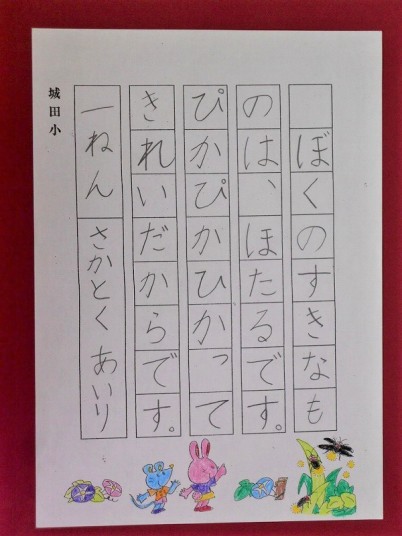 ぼくのすきなも
のは、ほたるです。
ぴかぴかひかって
きれいだからです。
一ねん さかとく あいり
城田小